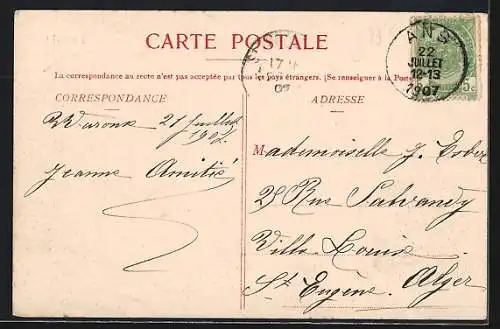 CARTE POSTALE
La correspondance au recto n'est pas acceptée par tous les pays étrangers. (Se renseigner à la Poste
CORRESPONDANCE
ADRESSE
ANS
22
JUILLET
12-13
1907
5c
17
07
Waroux 21 Juillet
1907.
Jeanne Amitié
Mademoiselle J.
25 Rue Salvandy
Villa Louise
St Eugène. Alger